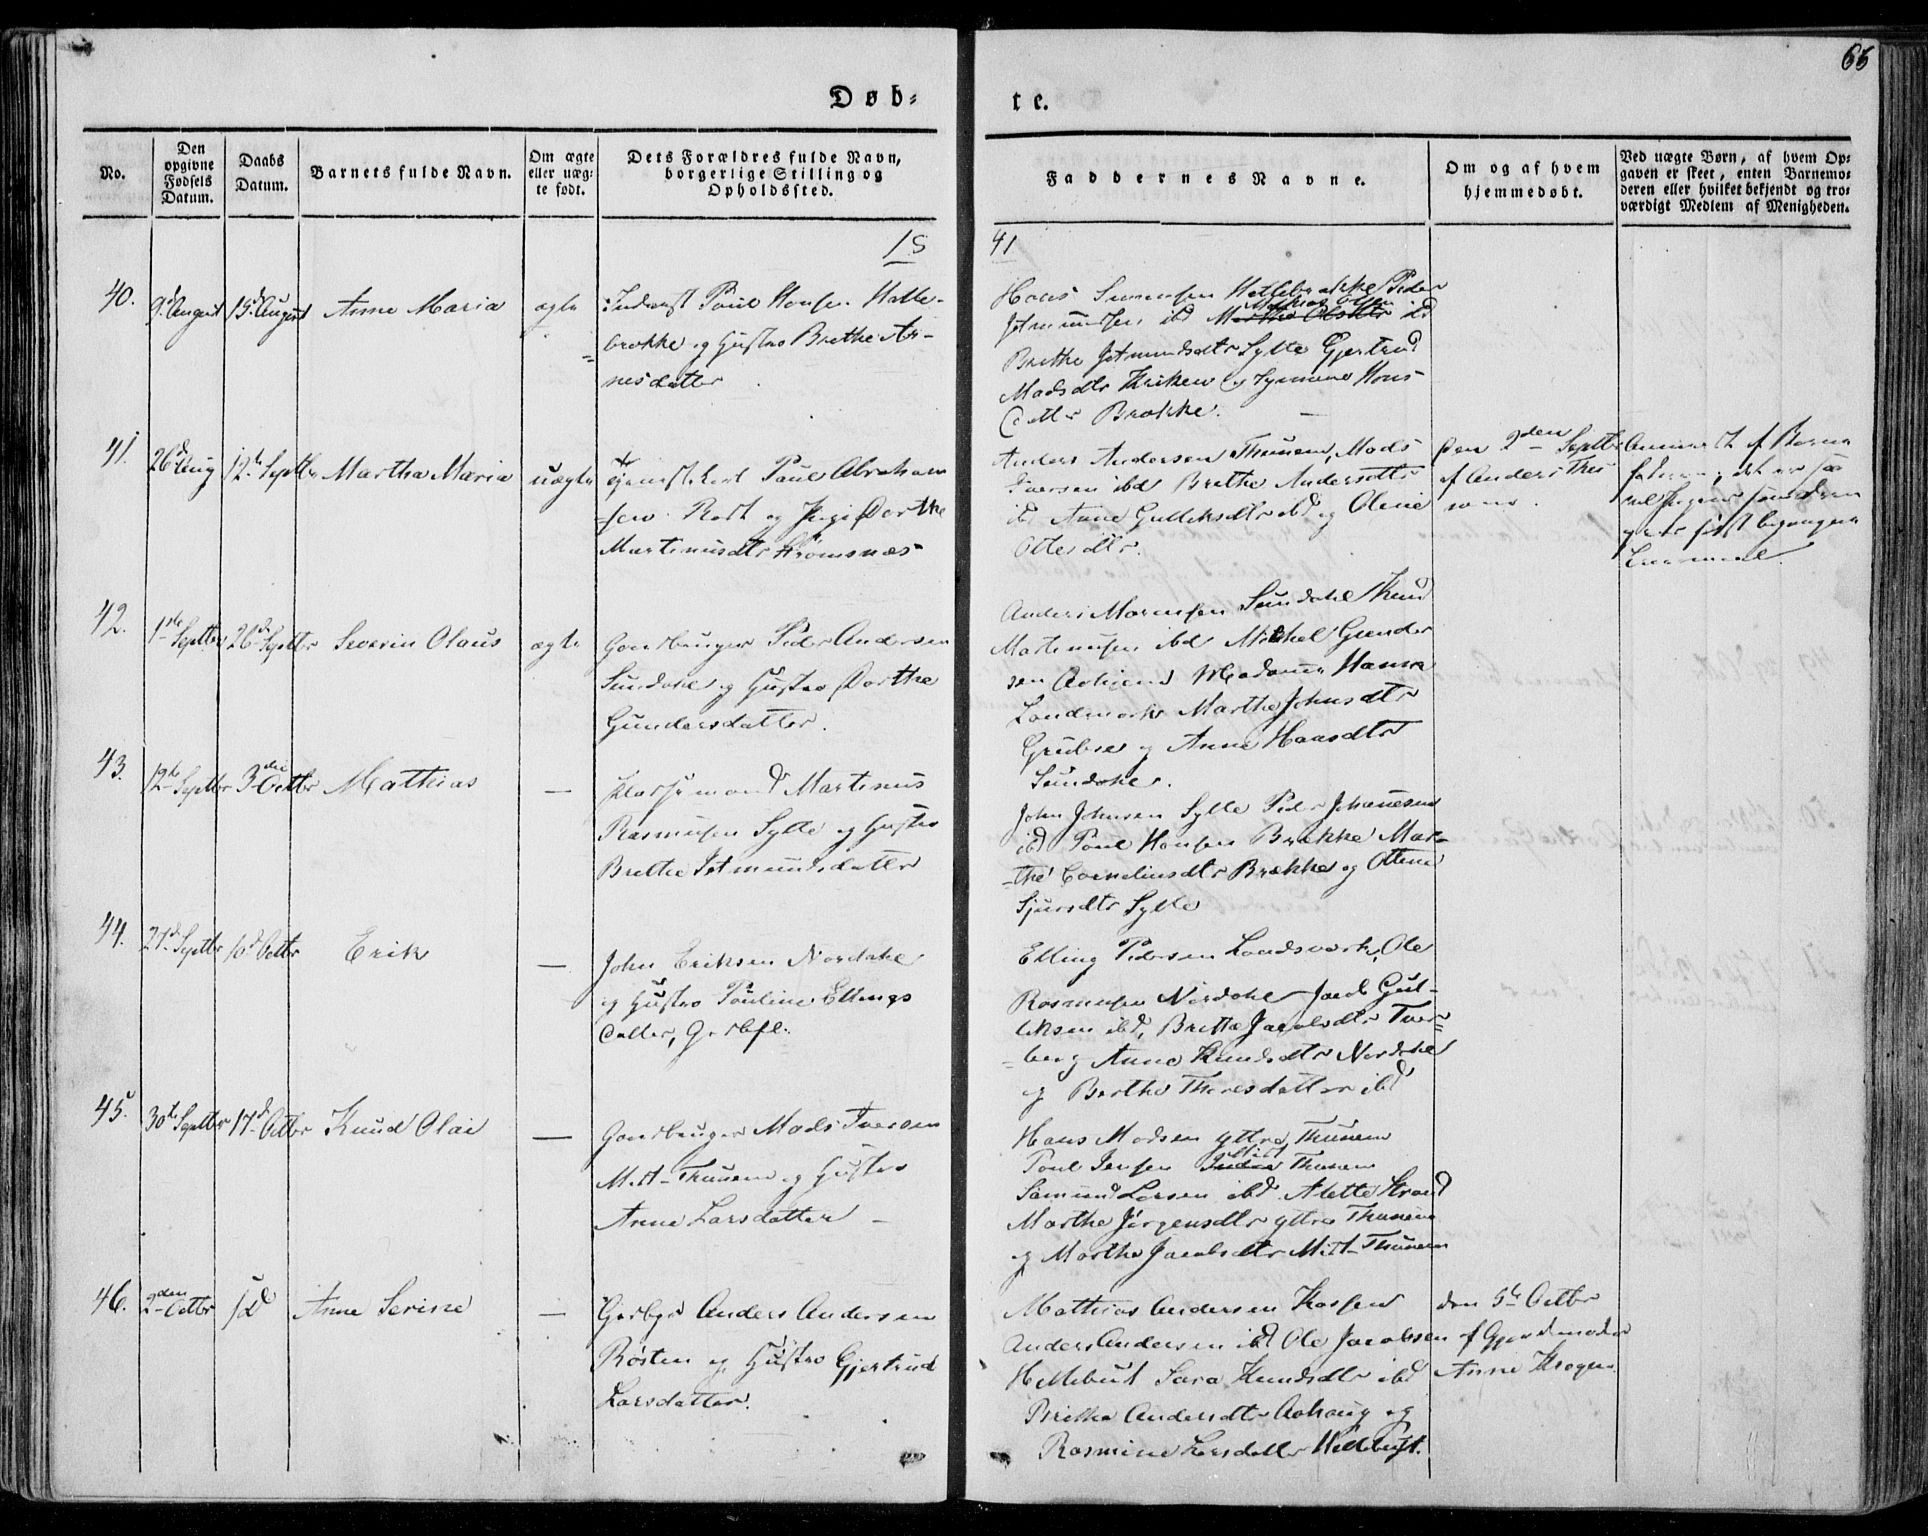 66
Døb-
te.
No.
Den
opgivne
Fødsels
Datum.
Daabs
Datum.
Barnets fulde Navn.
Om ægte
eller uæg-
te født.
Dets Forældres fulde Navn,
borgerlige Stilling og
Opholdssted.
Faddernes Navne.
Om og af hvem
hjemmedøbt.
Ved uægte Børn, af hvem Op-
gaven er skeet, enten Barnemo-
deren eller hvilket bekjendt og tro-
værdigt Medlem af Menigheden.
18
41
40.
9d August
15d August
Anne Maria
ægte
Inderst Poul Hansen Halle-
brække og Hustro Brethe Ar-
nesdatter
Hans
Hellebrække Peder
Mathias Olsen
ibd Marthe Olsdtr ibd
Brethe Jetmundsdtr Sylte Gjertrud
Madsdtr Kriken og Synneve Hans
dattr Brække.
41.
26d Aug
12t Septbr
Martha Maria
uægte
Tjenestekarl Poul Abraham
-sen Rød og Pige Dorthe
Martinusdtr Strømsnæs
Anders Andersen Thunem, Mads
Iversen ibd Brethe Andersdtr
ibd Anne Gulliksdtr ibd og Oline
Ottesdtr.
den 2den Septbr
af Anders Thu
nem.
Anmeldt af Barne
faderen; det er saa
vel Pigens som dren
gens først begangne
Leiermaal.
42.
1ste Septbr
26d Septbr
Severin Olaus
ægte
Gaardbruger Peder Andersen
Sundahl og Hustro Dorthe
Gundersdatter.
Anders Monsen Sundahl Knud
Martinusen ibd Mikkel Gunder
sen Madame Hanna
Landmark Marthe Johnsdtr
og Anne Hansdtr
Sundahl.
43.
12te Septbr
3die Octbr
Mathias
—
Pladsemand Martinus
Rasmusen Sylte og Hustro
Brethe Jetmundsdatter
John Johnsen Sylte Peder Johannesen
ibd Poul Hansen Brække Mar-
-the Corneliusdtr Brække og Oline
Sjursdtr Sylte
44.
21d Septbr
10d Octbr
Erik
—
John Eriksen Nordahl
og Hustro Pouline Ellings
datter, Grdbfl.
Elling Pedersen Landsværk, Ole
Rasmusen Nordahl Jacob Gul-
liksen ibd, Brethe Jacobsdtr Tver-
-berg Anne Knudsdtr Nordahl
og Berthe Theresdatter ibd
45.
30te Septbr
17d Octbr
Knud Olai
—
Gaardbruger Mads Iversen
Mitt-Thunem og Hustro
Anne Larsdatter —
Hans Madsen yttre Thunem
Poul Jensen Indre Thunem
Samund Larsen ibd Alette Strand
Marthe Jørgensdtr yttre Thunem
og Marthe Jacobsdtr Mitt-Thunem
46.
2den Octbr
d
Anne Serine
—
Grdbgr Anders Andersen
Røsten og Hustro Gjertrud
Larsdatter.
Mathias Andersen
Anders Andersen ibd Ole Jacobsen
Hellebust Sara Knudsdtr ibd
Brethe Andersdtr Aahaug og
Rasmine Larsdatter Hellebust.
den 5te Octbr
af Gjordemoder
Anne Krogen